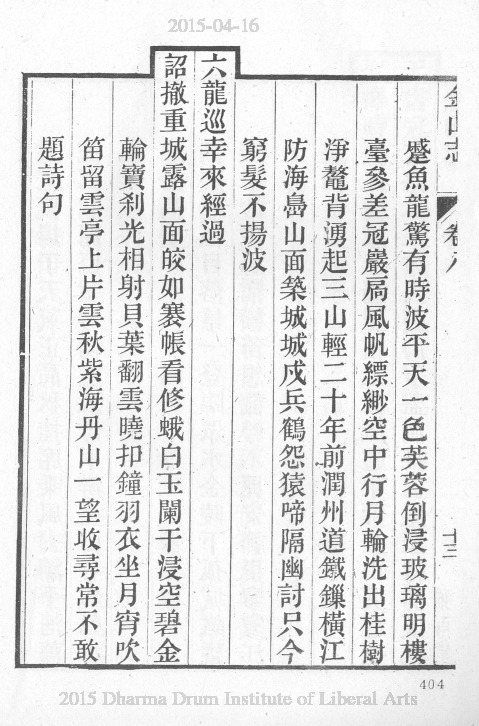 2015-04-16
金山志 卷八 十三
蹙魚龍驚有時波平天一色芙蓉倒浸玻璃明樓
臺參差冠巖扃風帆縹緲空中行月輪洗出桂樹
淨鼇背湧起三山輕二十年前潤州道鐵鏁橫江
防海島山面築城城戍兵鶴怨猿啼隔幽討只今
窮髮不揚波
六龍巡幸來經過
詔撤重城露山面皎如褰帳看修蛾白玉闌干浸空碧金
輪寶剎光相射貝葉翻雲曉扣鐘羽衣坐月宵吹
笛留雲亭上片雲秋紫海丹山一望收尋常不敢
題詩句
404
2015 Dharma Drum Institute of Liberal Arts